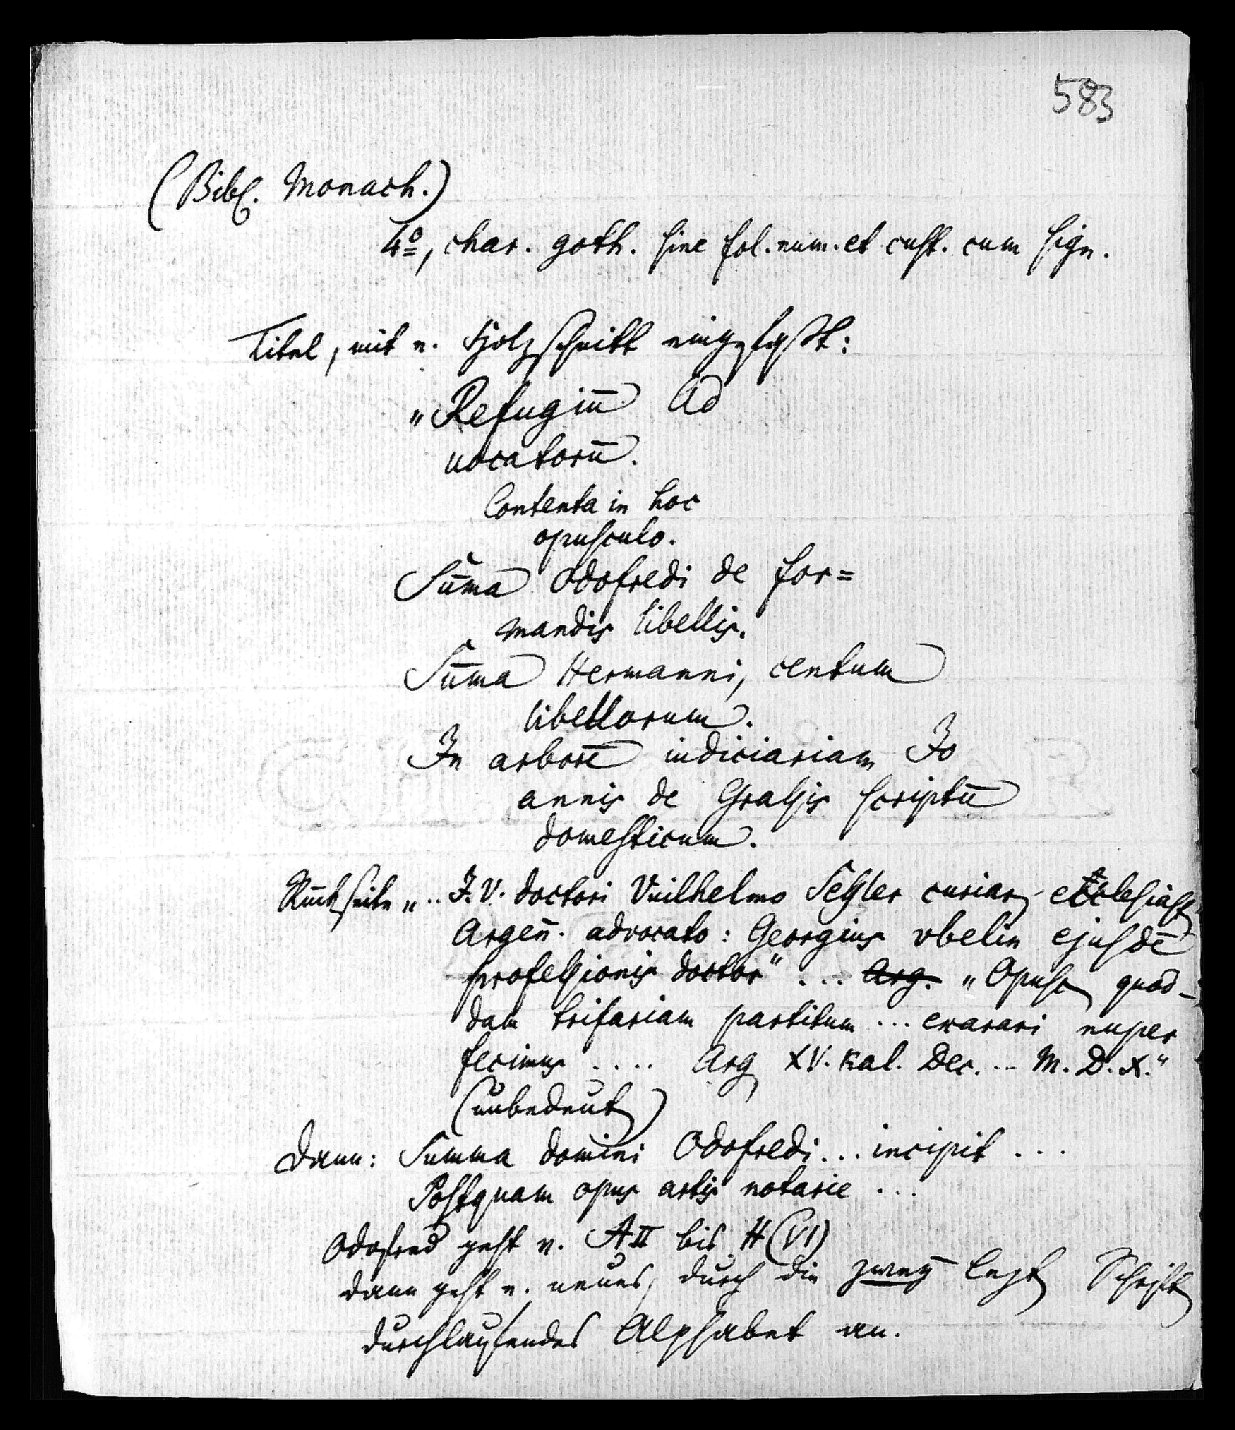 583
(Bibl. Monach.)
4º, char. goth. sine fol. num. et cust. cum sign.
Titel, mit e. Holzschnitt eingefaßt:
„Refugiū Ad
uocatorū.
Contenta in hoc
opusculo.
Sūma Odofredi de for=
mandis libellis.
Sūma Hermanni, centum
libellorum.
In arborē iudiciariam Jo
annis de Grassis scriptū
domesticum.
Rückseite „.. J.V. doctori Vuilhelmo Seszler curiae ecclesiast
Argeñ. advocato: Georgius vbelin ejusdē
professionis doctor“ ... Arg. „Opusc quod-
dam trifariam partitum ... exarari nuper
fecimus .... Arg XV. kal. Dec. .. M.D.X.“
(unbedeut)
Dann: Summa domini Odofredi ... incipit ...
Postquam opus artis notarie ...
Odofred geht v. A II bis H (VI)
dann geht e. neues, durch die zwey letzt Schrift
durchlaufendes Alphabet an.